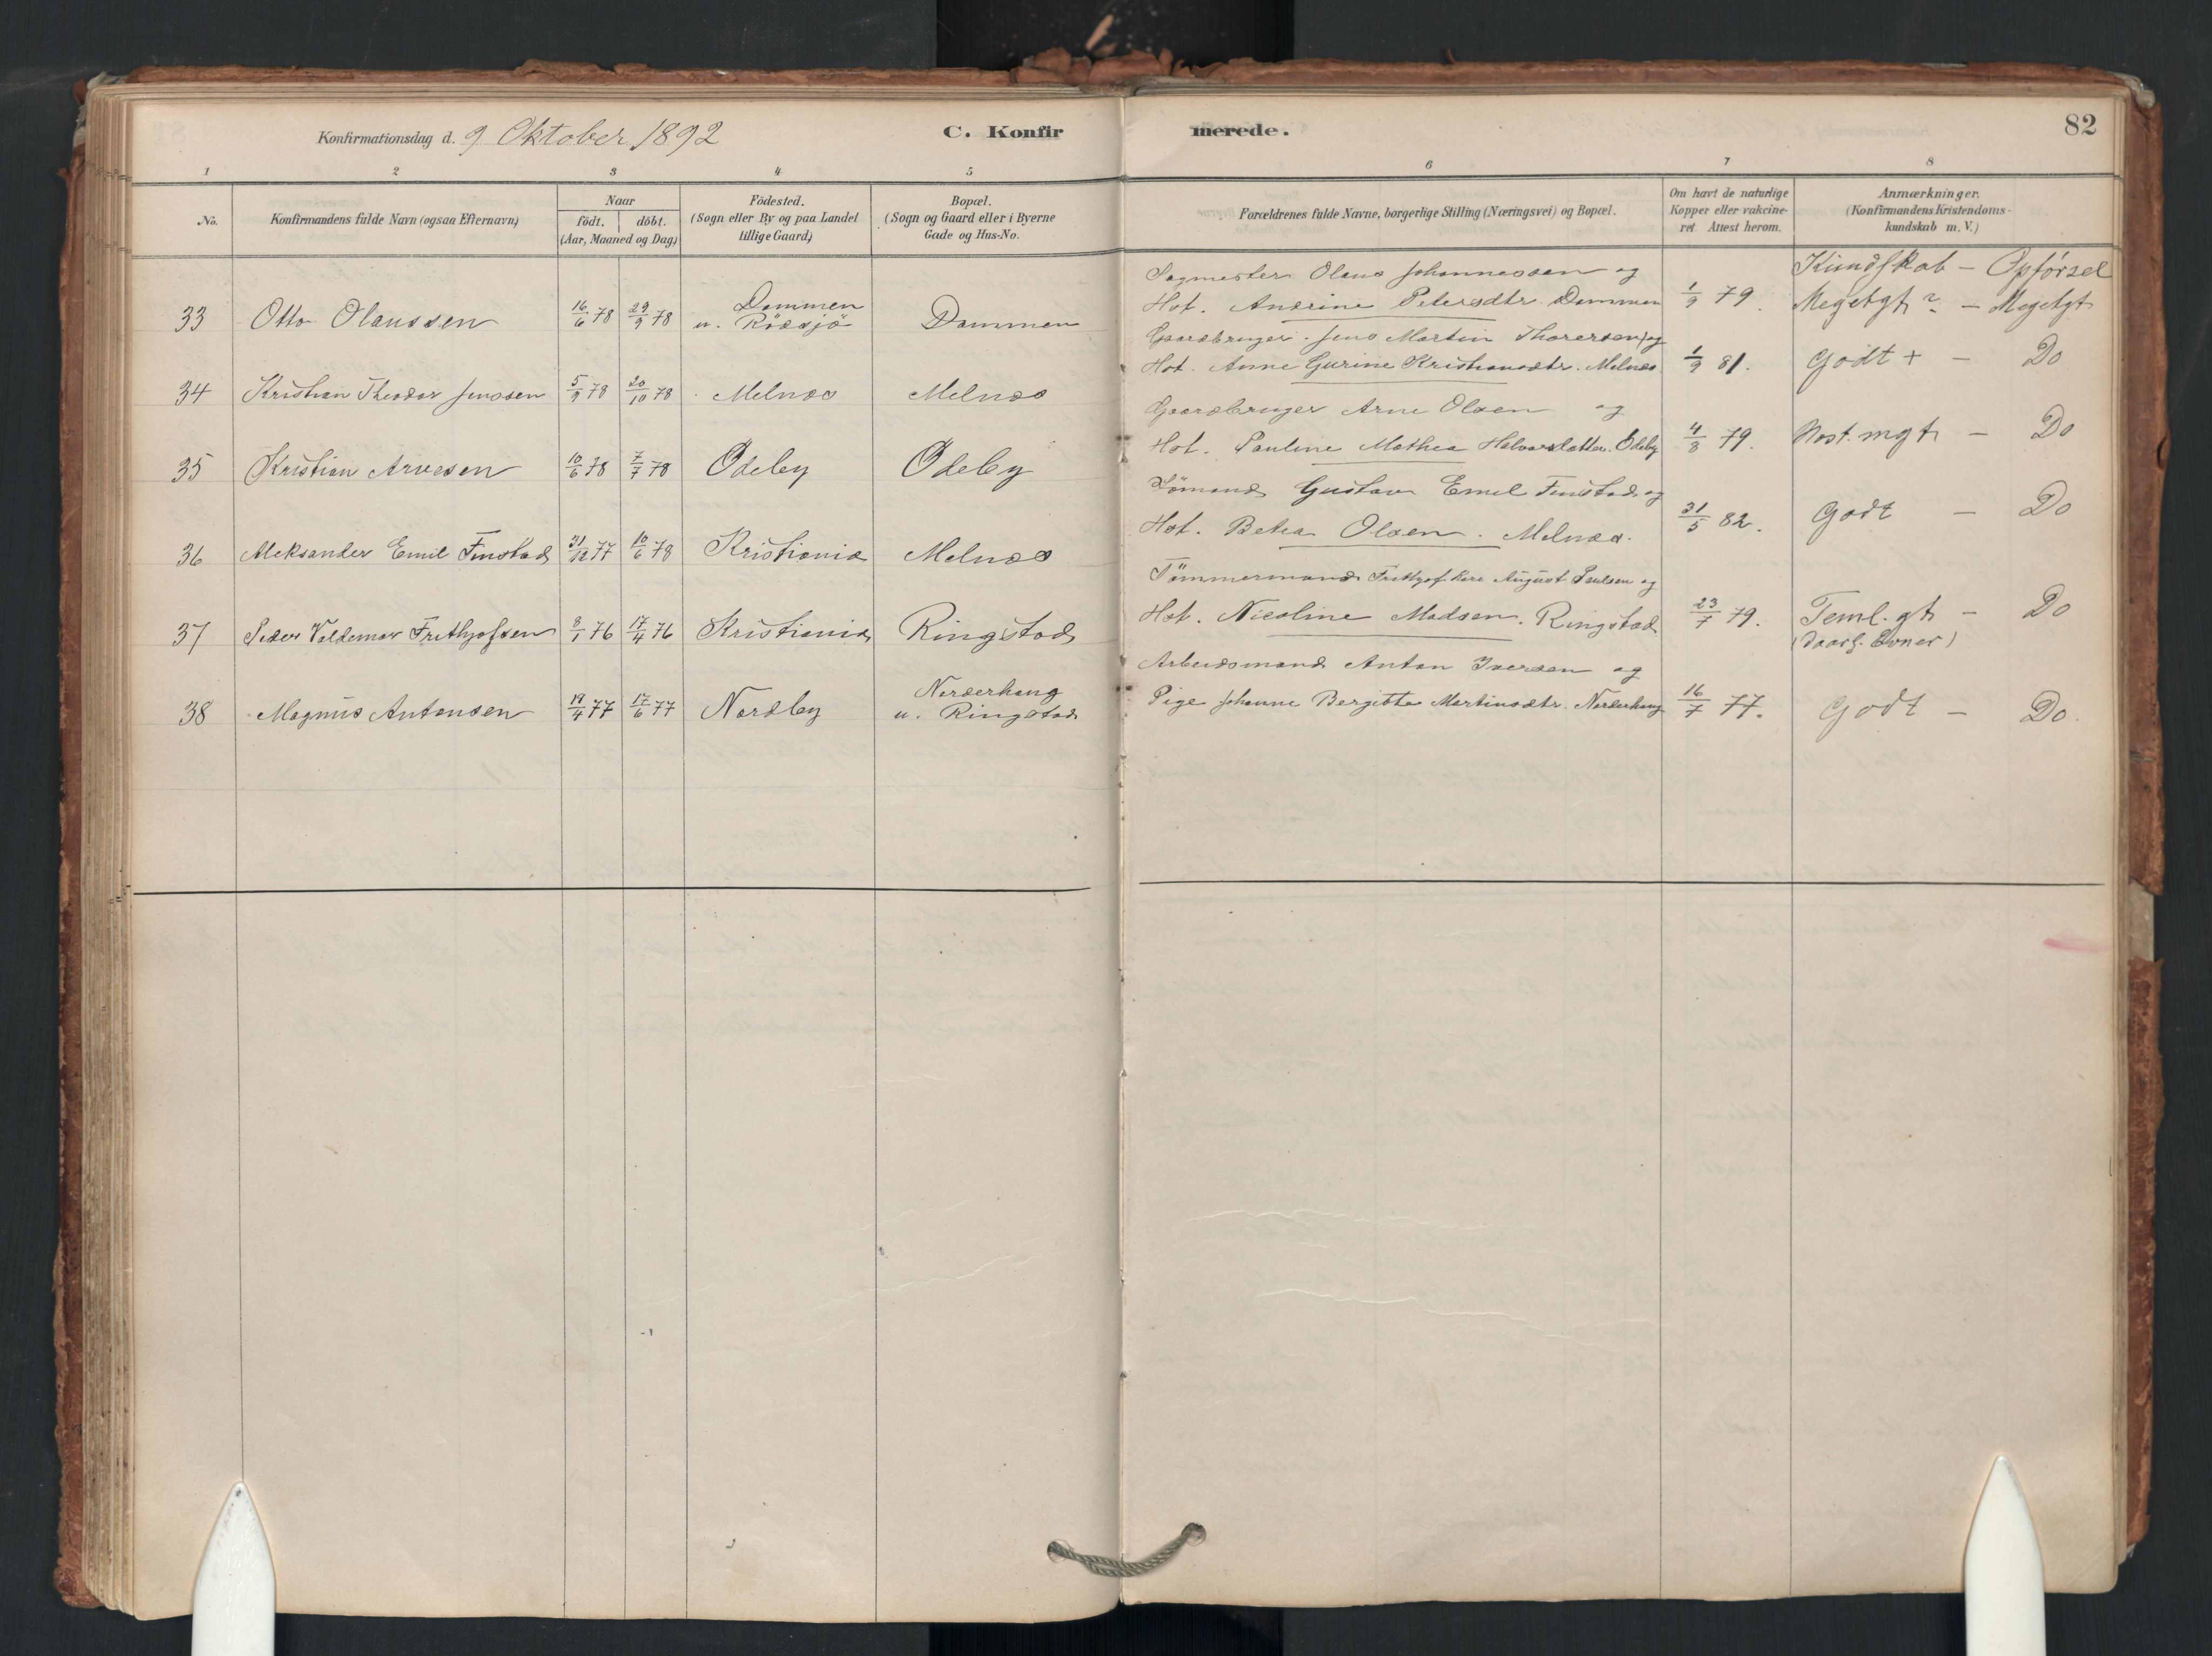 Konfirmationsdag d. 9 Oktober 1892
C. Konfir
merede.
82
1 2 3 4 5 6 7 8
No.
Konfirmandens fulde Navn (ogsaa Efternavn)
Naar
födt. döbt.
(Aar, Maaned og Dag)
Födested.
(Sogn eller By og paa Landet
tillige Gaard)
Bopæl.
(Sogn og Gaard eller i Byerne
Gade og Hus-No.
Forældrenes fulde Navne, borgerlige Stilling (Næringsvei) og Bopæl.
Om havt de naturlige
Kopper eller vakcine-
ret Attest herom.
Anmærkninger.
(Konfirmandens Kristendoms-
kundskab m. V.)
Kundskab – Opförsel
Sagmester Olaus Johannessen og
33 Otto Olaussen 16/6 78 29/9 78 Dammen
u. Rödsjö Dammen
Hst. Andrine Petersdtr. Dammen 1/9 79. Megetgt ? – Megetgt
Gaardbruger Jens Martin Thoresen og
34 Kristian Theodor Jenssen 5/9 78 20/10 78 Melnæs Melnæs
Hst. Anne Gurine Kristiansdtr. Melnæs 1/9 81. Godt + – Do
Gaardbruger Arne Olsen og
35 Kristian Arnesen 10/6 78 7/7 78 Ödeby Ödeby
Hst. Pauline Mathea Halvorsdatter. Ödeby 4/8 79. Næst. mgt – Do
Sömand Gustav Emil Finstad og
36 Aleksander Emil Finstad 31/12 77 10/6 78 Kristiania Melnæs
Hst. Betea Olsen. Melnæs. 31/5 82. Godt – Do
Tömmermand Frithjof Kare August Paulsen og
37 Peder Valdemar Frithjofsen 8/1 76 17/4 76 Kristiania Ringstad
Hst. Nicoline Madsen. Ringstad 23/7 79. Teml. gt – Do
(daarl. Evner)
Arbeidsmand Anton Iversen og
38 Magnus Antonsen 19/4 77 17/6 77 Nordby Norderhaug
u. Ringstad
Pige Johanne Bergitte Martinsdtr. Norderhaug 16/7 77. Godt – Do.